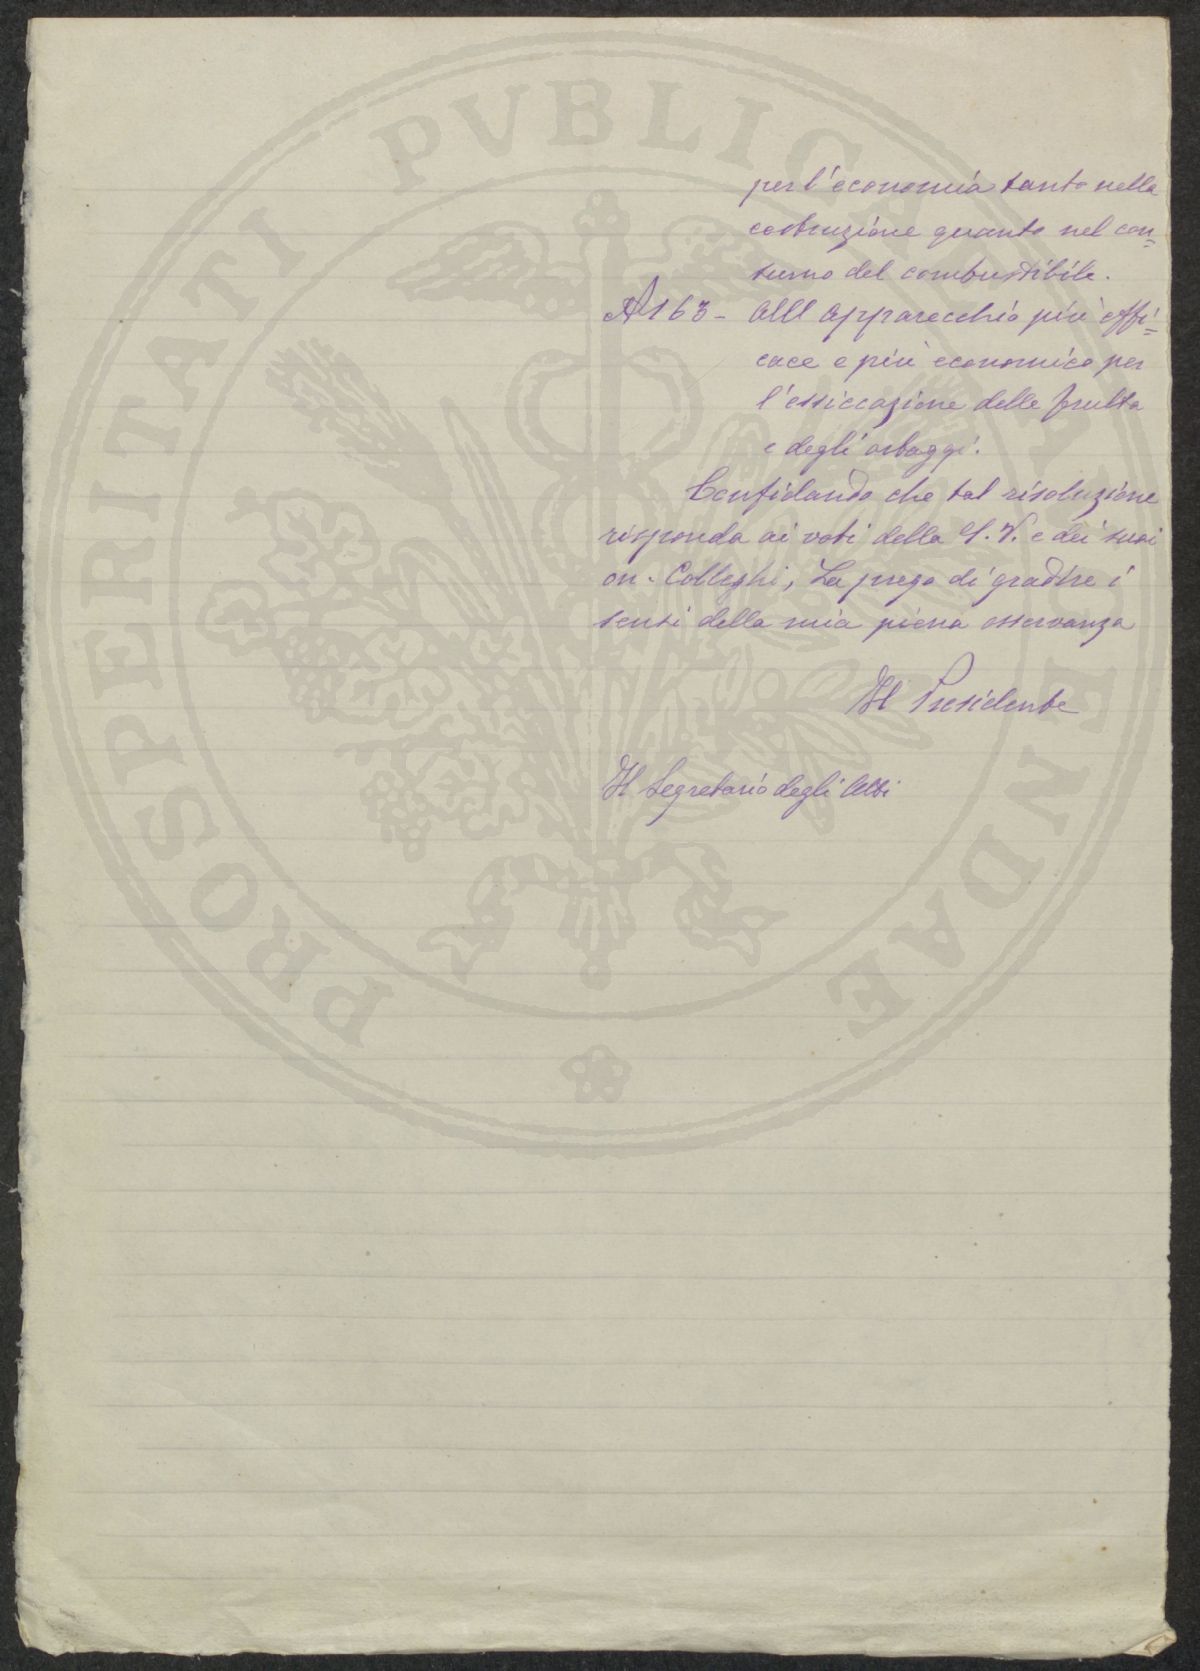 per l'economia tanto nella
costruzione quanto nel con=
sumo del combustibile.
A 163 - All' Apparecchio più effi=
cace e più economico per
l'essiccazione delle frutta
e degli ortaggi.
Confidando che tal risoluzione
risponda ai voti della S. V. e dei suoi
on. Colleghi, La prego di gradire i
sensi della mia piena osservanza
Il Presidente
Il Segretario degli Atti
PROSPERITATI PVBLICAE AVGENDAE